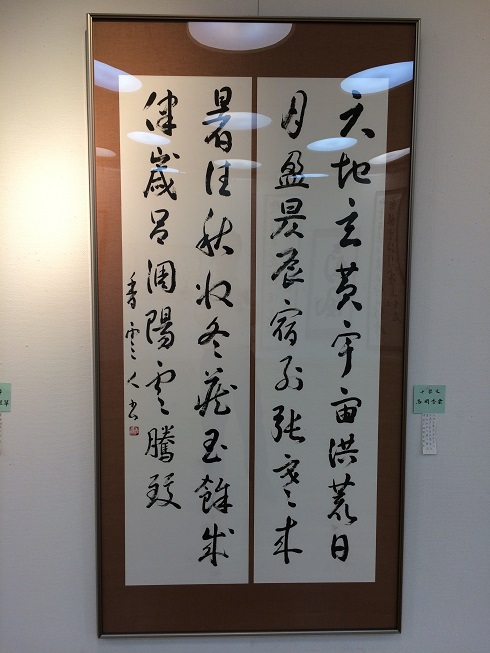 天地玄黄宇宙洪荒日
月盈昃辰宿列張寒来
暑往秋収冬蔵閏餘成
律歳呂調陽雲騰致
香雲人书